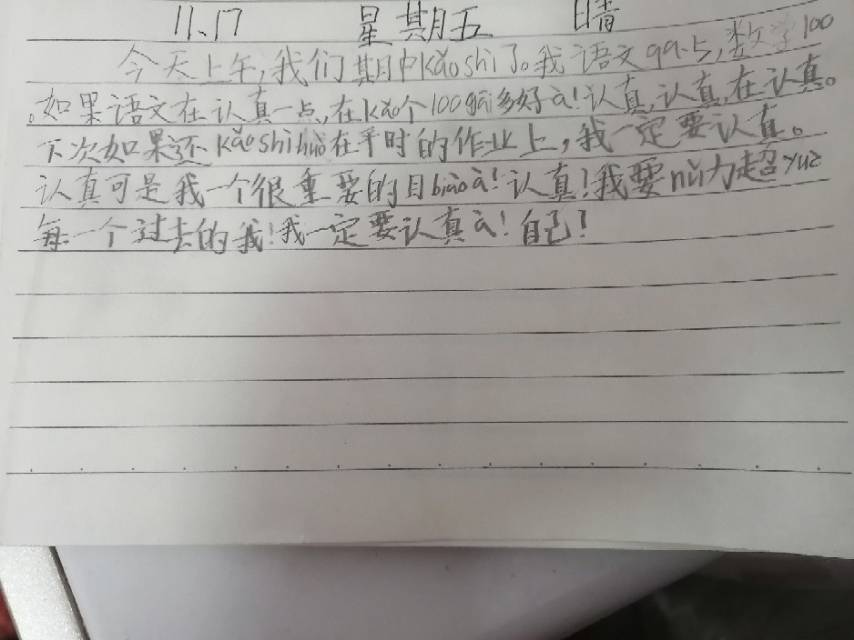 11.17 星期五 晴
今天上午,我们期中kǎoshi了。我语文99.5,数学100
。如果语文在认真一点,在kǎo个100gāi多好a!认真,认真,在认真。
下次如果还kǎoshihuò在平时的作业上,我一定要认真。
认真可是我一个很重要的目biāoa!认真!我要nǔ力超yuè
每一个过去的我!我一定要认真a!自己!